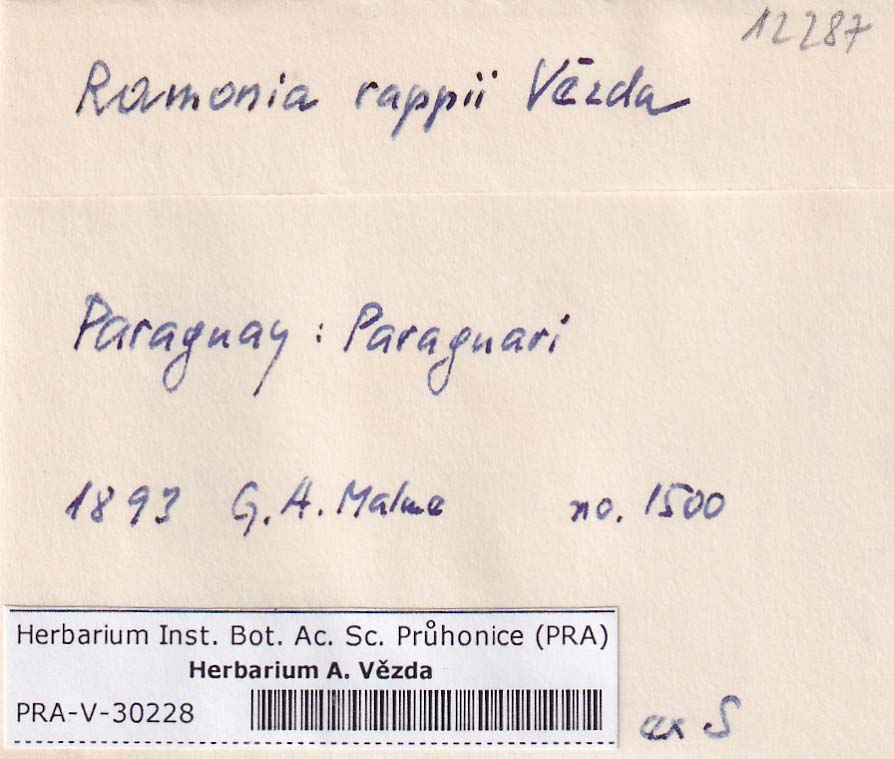 12287
Ramonia rappii Vězda
Paraguay : Paraguari
1893 G. A. Malme no. 1500
Herbarium Inst. Bot. Ac. Sc. Průhonice (PRA)
Herbarium A. Vězda
PRA-V-30228
ex S